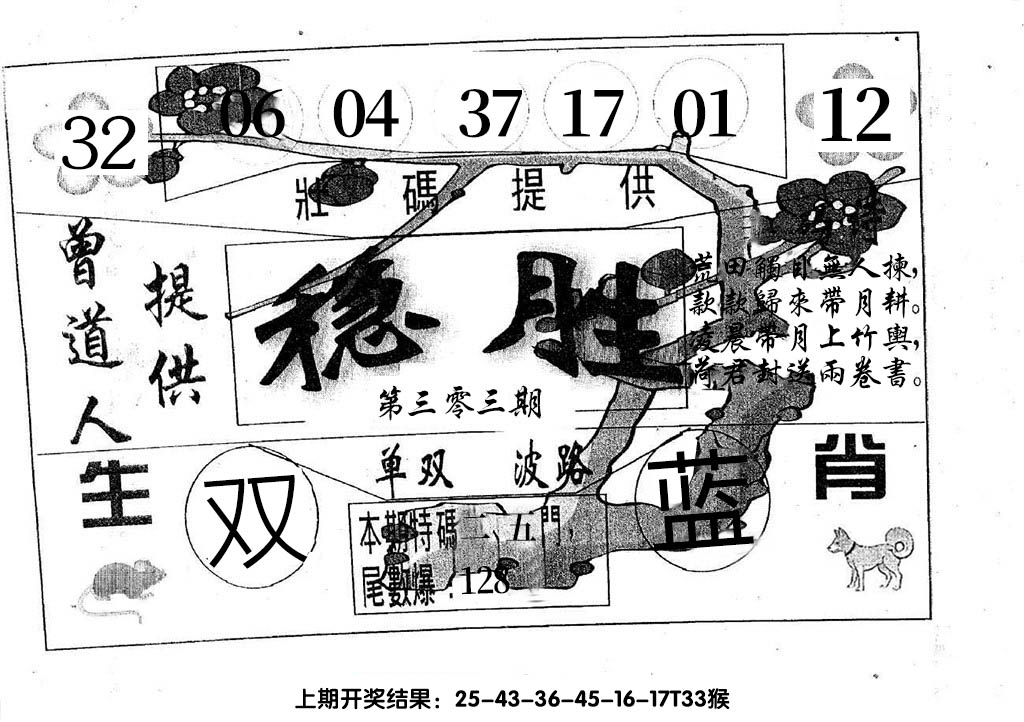 32 06 04 37 17 01 12
壯碼提供
特
曾道人
提供
稳胜
第三零三期
荒田觸目無人揀，
款款歸來帶月耕。
凌晨帶月上竹輿，
荷君封送兩卷書。
单双 波路
生肖
双
蓝
本期特碼二、五門，
尾數爆：128
上期开奖结果：25-43-36-45-16-17T33猴